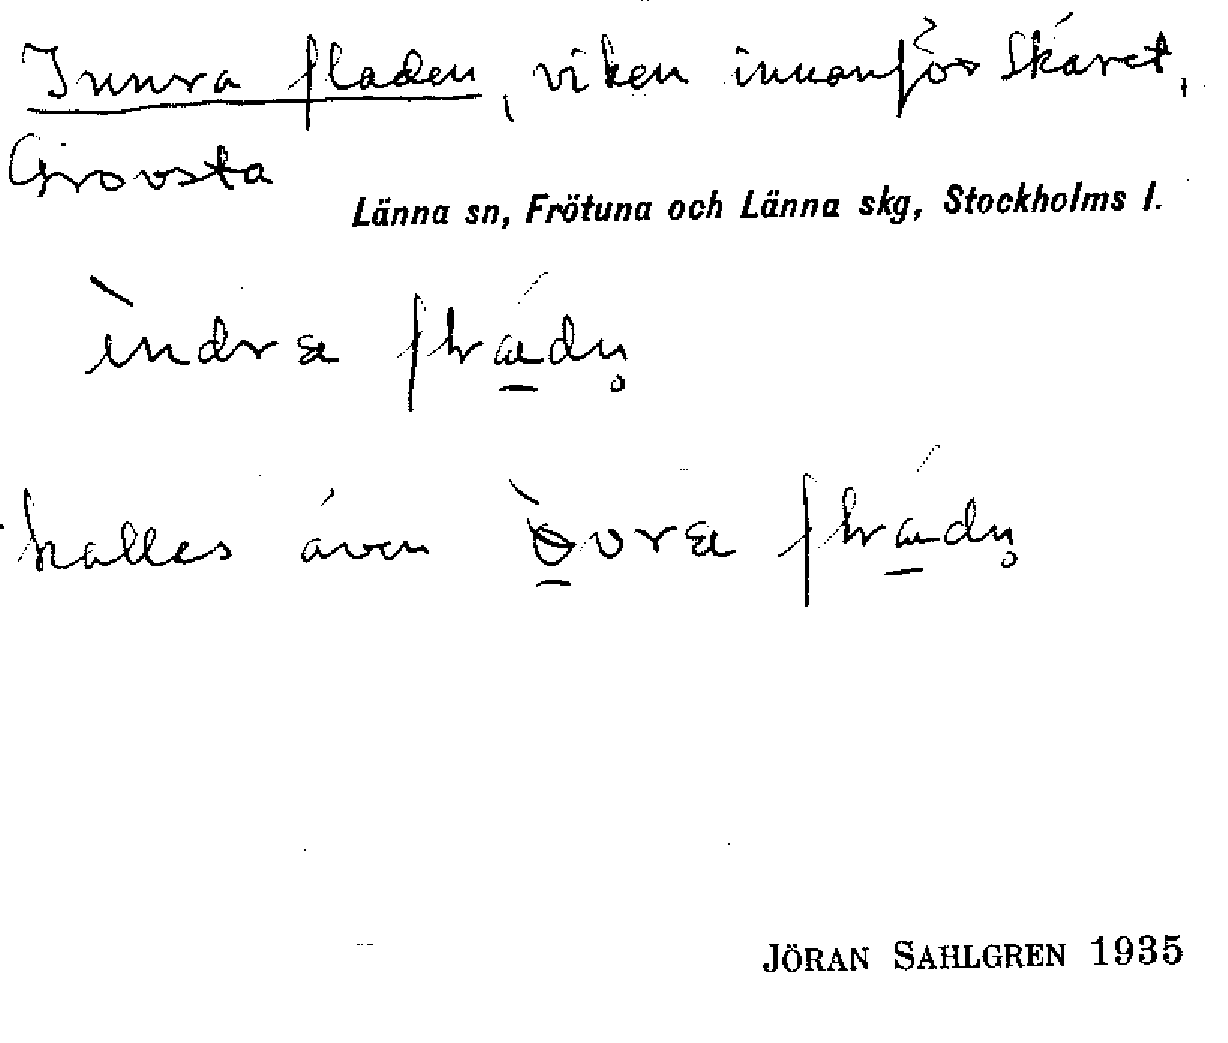 Innra fladen, viken innanför Skäret,
Grovsta
Länna sn, Frötuna och Länna skg, Stockholms l.
indra
kallas även
JÖRAN SAHLGREN 1935